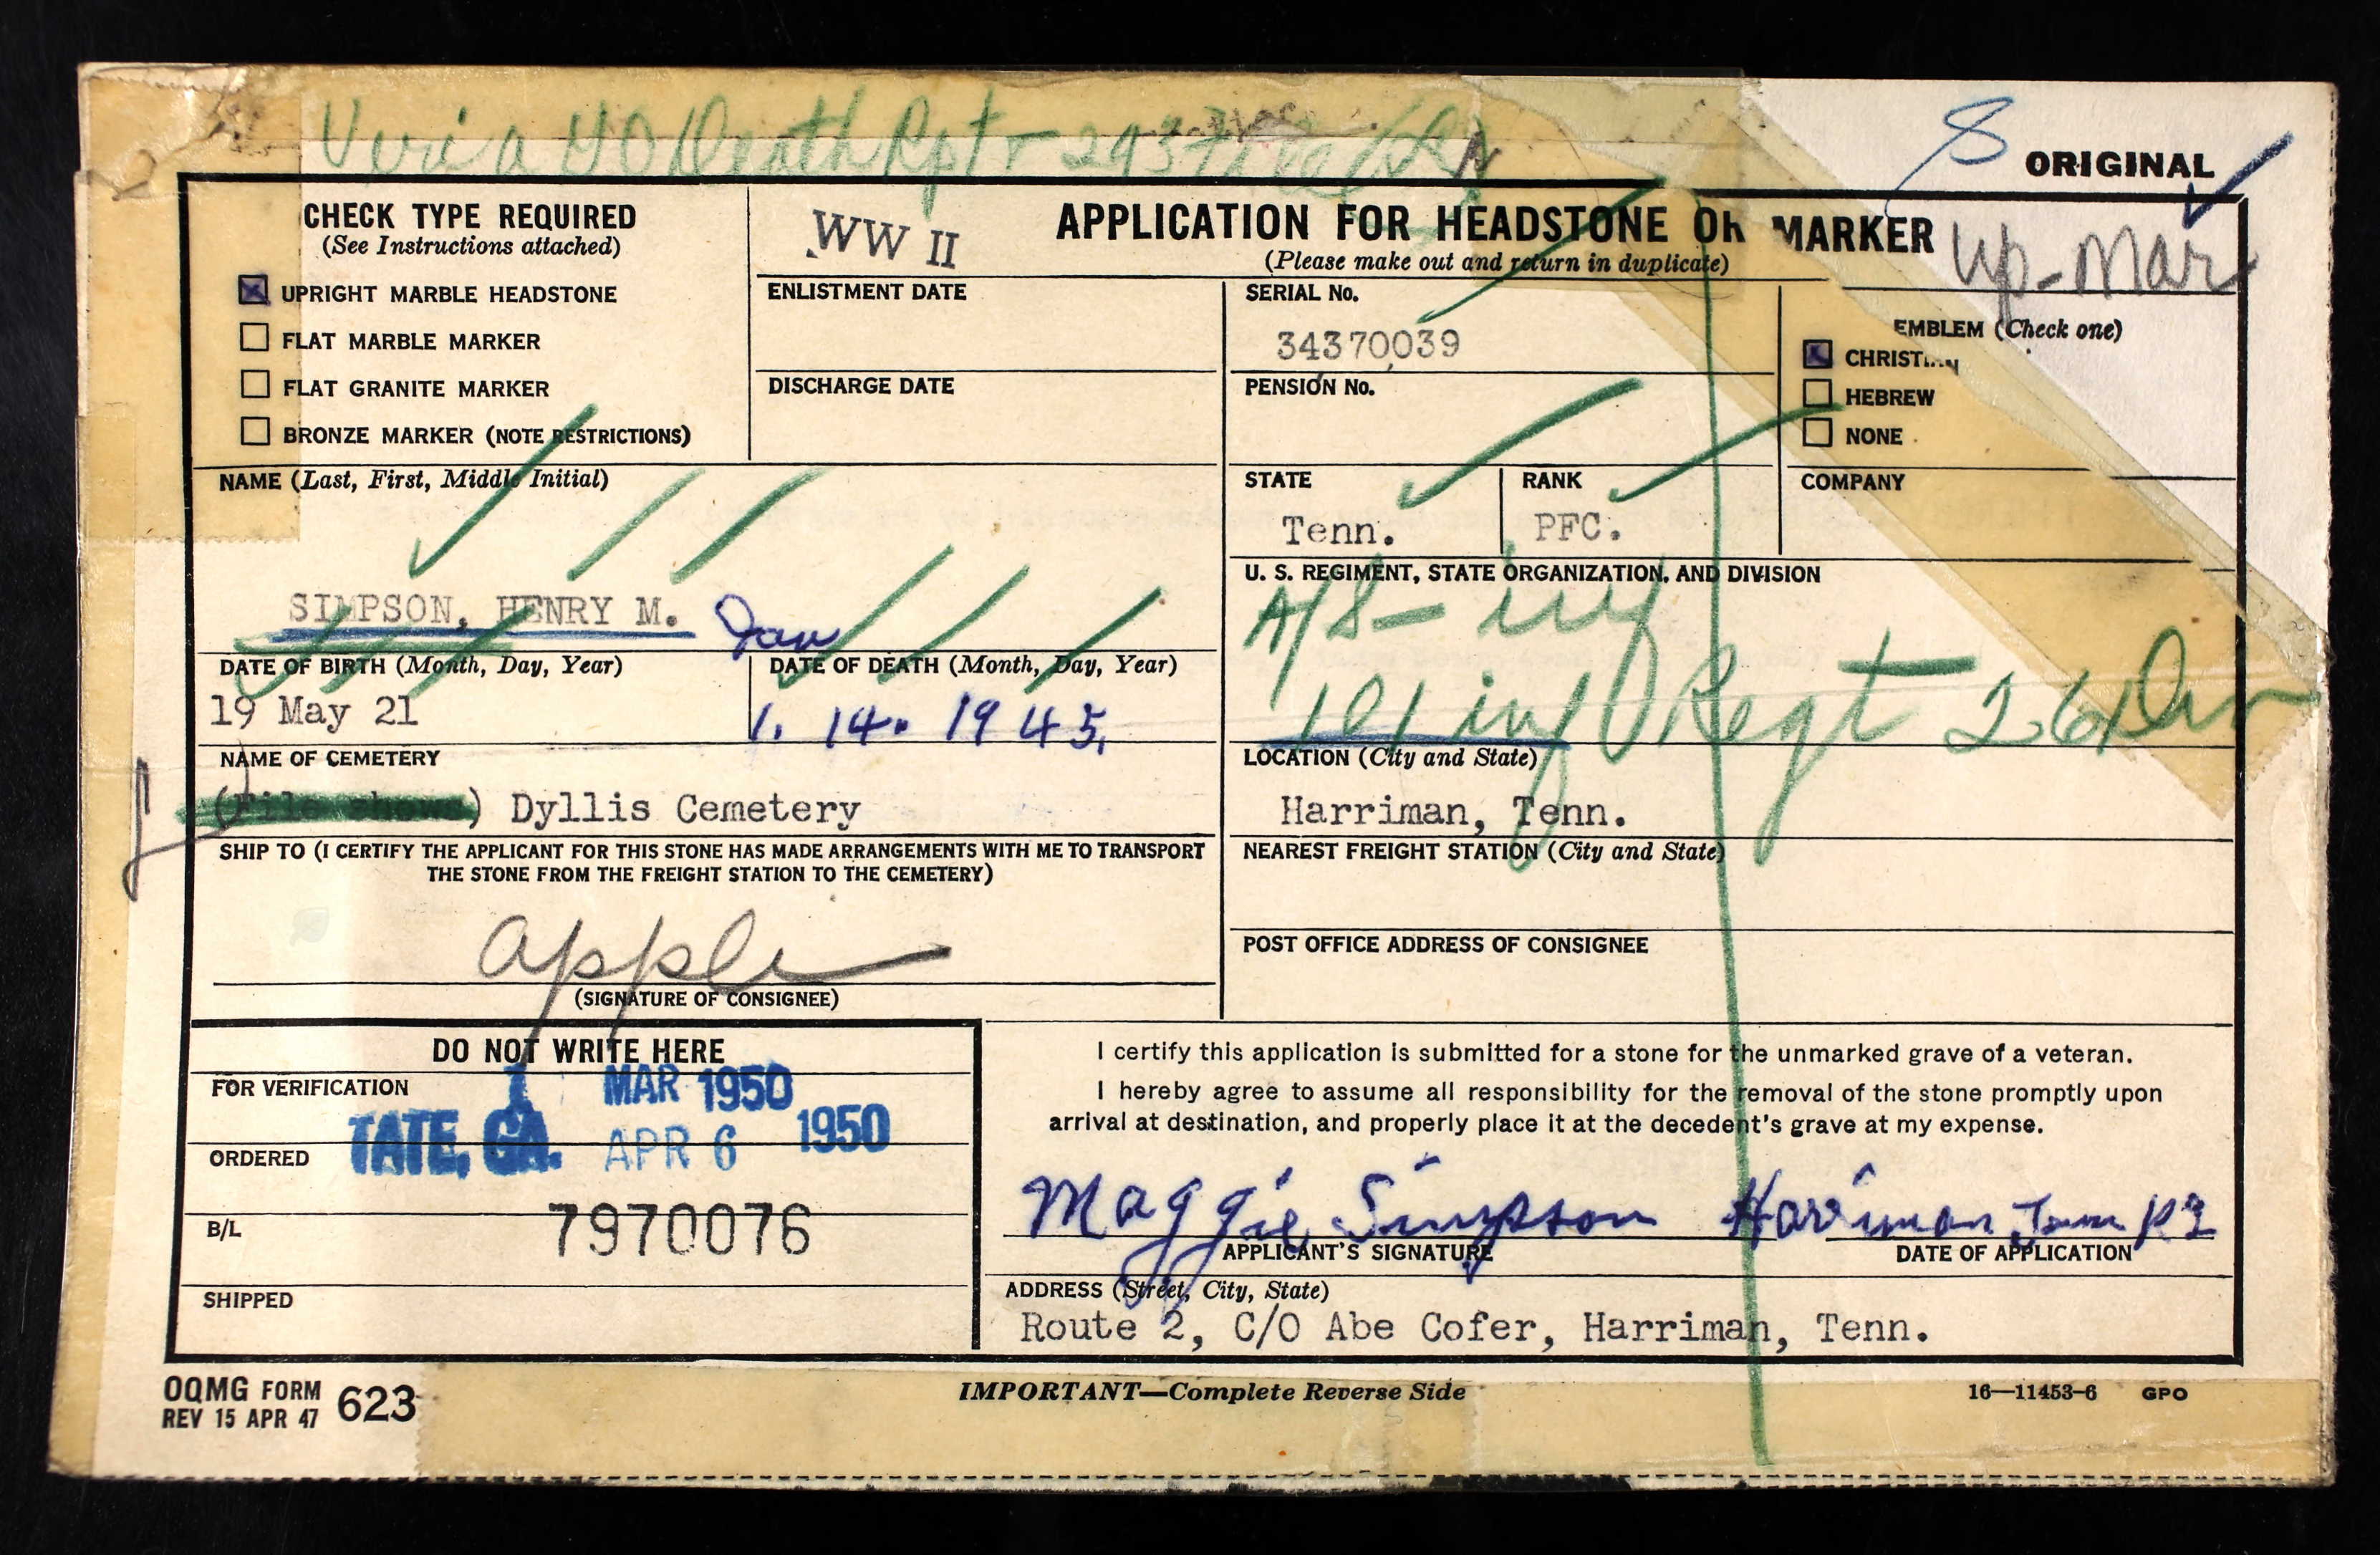 Veri a GO Death Rpt
S ORIGINAL
CHECK TYPE REQUIRED
(See Instructions attached)
UPRIGHT MARBLE HEADSTONE
FLAT MARBLE MARKER
FLAT GRANITE MARKER
BRONZE MARKER (NOTE RESTRICTIONS)
WW II
APPLICATION FOR HEADSTONE OR MARKER
(Please make out and return in duplicate)
Up-Mar
ENLISTMENT DATE
DISCHARGE DATE
SERIAL No.
34370039
PENSION No.
EMBLEM (Check one)
CHRISTIAN
HEBREW
NONE
NAME (Last, First, Middle Initial)
SIMPSON, HENRY M.
STATE
Tenn.
RANK
PFC.
COMPANY
U. S. REGIMENT, STATE ORGANIZATION, AND DIVISION
A/S- inf
101 inf Regt 26 Div
DATE OF BIRTH (Month, Day, Year)
19 May 21
Jan
DATE OF DEATH (Month, Day, Year)
1. 14. 1945.
NAME OF CEMETERY
(File shows) Dyllis Cemetery
LOCATION (City and State)
Harriman, Tenn.
SHIP TO (I CERTIFY THE APPLICANT FOR THIS STONE HAS MADE ARRANGEMENTS WITH ME TO TRANSPORT
THE STONE FROM THE FREIGHT STATION TO THE CEMETERY)
appli
(SIGNATURE OF CONSIGNEE)
NEAREST FREIGHT STATION (City and State)
POST OFFICE ADDRESS OF CONSIGNEE
DO NOT WRITE HERE
FOR VERIFICATION
1 MAR 1950
ORDERED
TATE, GA. APR 6 1950
B/L
7970076
SHIPPED
I certify this application is submitted for a stone for the unmarked grave of a veteran.
I hereby agree to assume all responsibility for the removal of the stone promptly upon
arrival at destination, and properly place it at the decedent's grave at my expense.
Maggie Simpson Harriman Tenn R2
APPLICANT'S SIGNATURE
DATE OF APPLICATION
ADDRESS (Street, City, State)
Route 2, C/O Abe Cofer, Harriman, Tenn.
OQMG FORM 623
REV 15 APR 47
IMPORTANT—Complete Reverse Side
16—11453-6 GPO